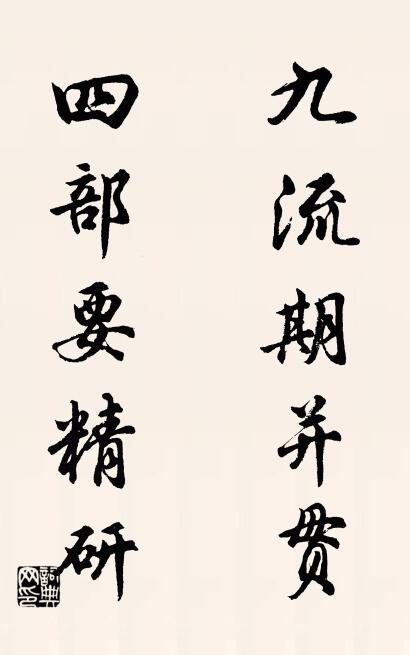 九流期并贯
四部要精研